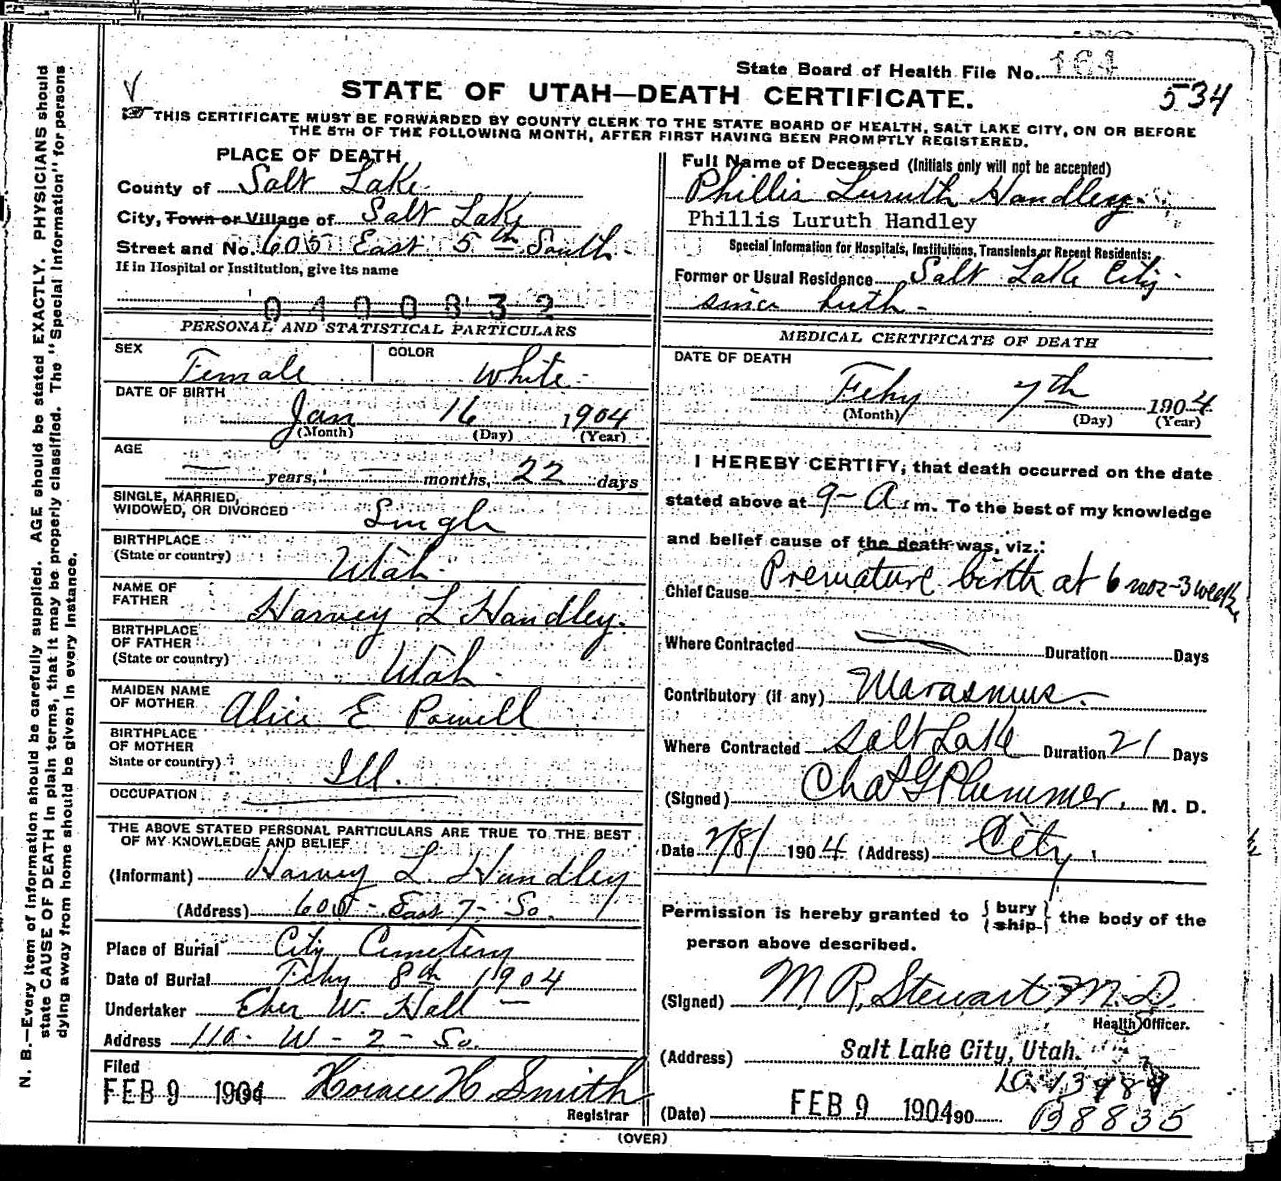 State Board of Health File No. 164
534
STATE OF UTAH—DEATH CERTIFICATE.
THIS CERTIFICATE MUST BE FORWARDED BY COUNTY CLERK TO THE STATE BOARD OF HEALTH, SALT LAKE CITY, ON OR BEFORE
THE 5TH OF THE FOLLOWING MONTH, AFTER FIRST HAVING BEEN PROMPTLY REGISTERED.
PLACE OF DEATH
County of Salt Lake
City, Town or Village of Salt Lake
Street and No. 605 East 5th South
If in Hospital or Institution, give its name
0490832
PERSONAL AND STATISTICAL PARTICULARS
SEX Female COLOR White
DATE OF BIRTH
Jan 16 1904
(Month) (Day) (Year)
AGE
— years, — months, 22 days
SINGLE, MARRIED,
WIDOWED, OR DIVORCED Single
BIRTHPLACE
(State or country) Utah
NAME OF
FATHER Harvey L Handley.
BIRTHPLACE
OF FATHER
(State or country) Utah
MAIDEN NAME
OF MOTHER Alice E Powell
BIRTHPLACE
OF MOTHER
State or country) Ill.
OCCUPATION
THE ABOVE STATED PERSONAL PARTICULARS ARE TRUE TO THE BEST
OF MY KNOWLEDGE AND BELIEF
(Informant) Harvey L. Handley
(Address) 605 - East 7 - So.
Place of Burial City Cemetery
Date of Burial Feby 8th 1904
Undertaker Eber W. Hall
Address 110 - W - 2 - So.
Filed
FEB 9 1904 Horace H Smith
Registrar
(OVER)
Full Name of Deceased (Initials only will not be accepted)
Phillis Luruth Handley.
Phillis Luruth Handley
Special Information for Hospitals, Institutions, Transients or Recent Residents:
Former or Usual Residence Salt Lake City -
since birth -
MEDICAL CERTIFICATE OF DEATH
DATE OF DEATH
Feby 7th 1904
(Month) (Day) (Year)
I HEREBY CERTIFY, that death occurred on the date
stated above at 9- A. m. To the best of my knowledge
and belief cause of the death was, viz.:
Chief Cause Premature birth at 6 mos - 3 weeks
Where Contracted Duration Days
Contributory (if any) Marasmus.
Where Contracted Salt Lake Duration 21 Days
(Signed) Chas G Plummer. M. D.
Date 2/8/ 1904 (Address) City.
Permission is hereby granted to {bury
{ship} the body of the
person above described.
(Signed) M R. Stewart, M. D.
Health Officer.
(Address) Salt Lake City, Utah.
(Date) FEB 9 1904 90
B8835
N. B.—Every item of information should be carefully supplied. AGE should be stated EXACTLY. PHYSICIANS should
state CAUSE OF DEATH in plain terms, that it may be properly classified. The "Special Information" for persons
dying away from home should be given in every instance.